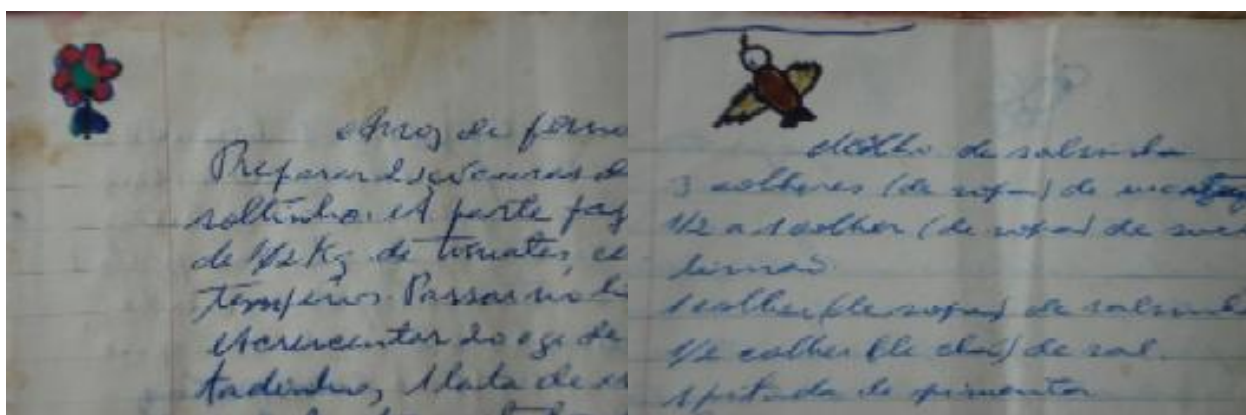 Arroz de forno
Preparar 2 xícaras de
soltinho. A parte faz
de 1/2 Kg de tomates, ce
temperos. Passar no li
Acrescentar 2 ega de
tadinho, 1 lata de
Molho de salsinha
3 colheres (de sopa) de manteig
1/2 a 1 colher (de sopa) de suco
limão
1 colher (de sopa) de salsinha
1/2 colher (de chá) de sal.
1 pitada de pimenta